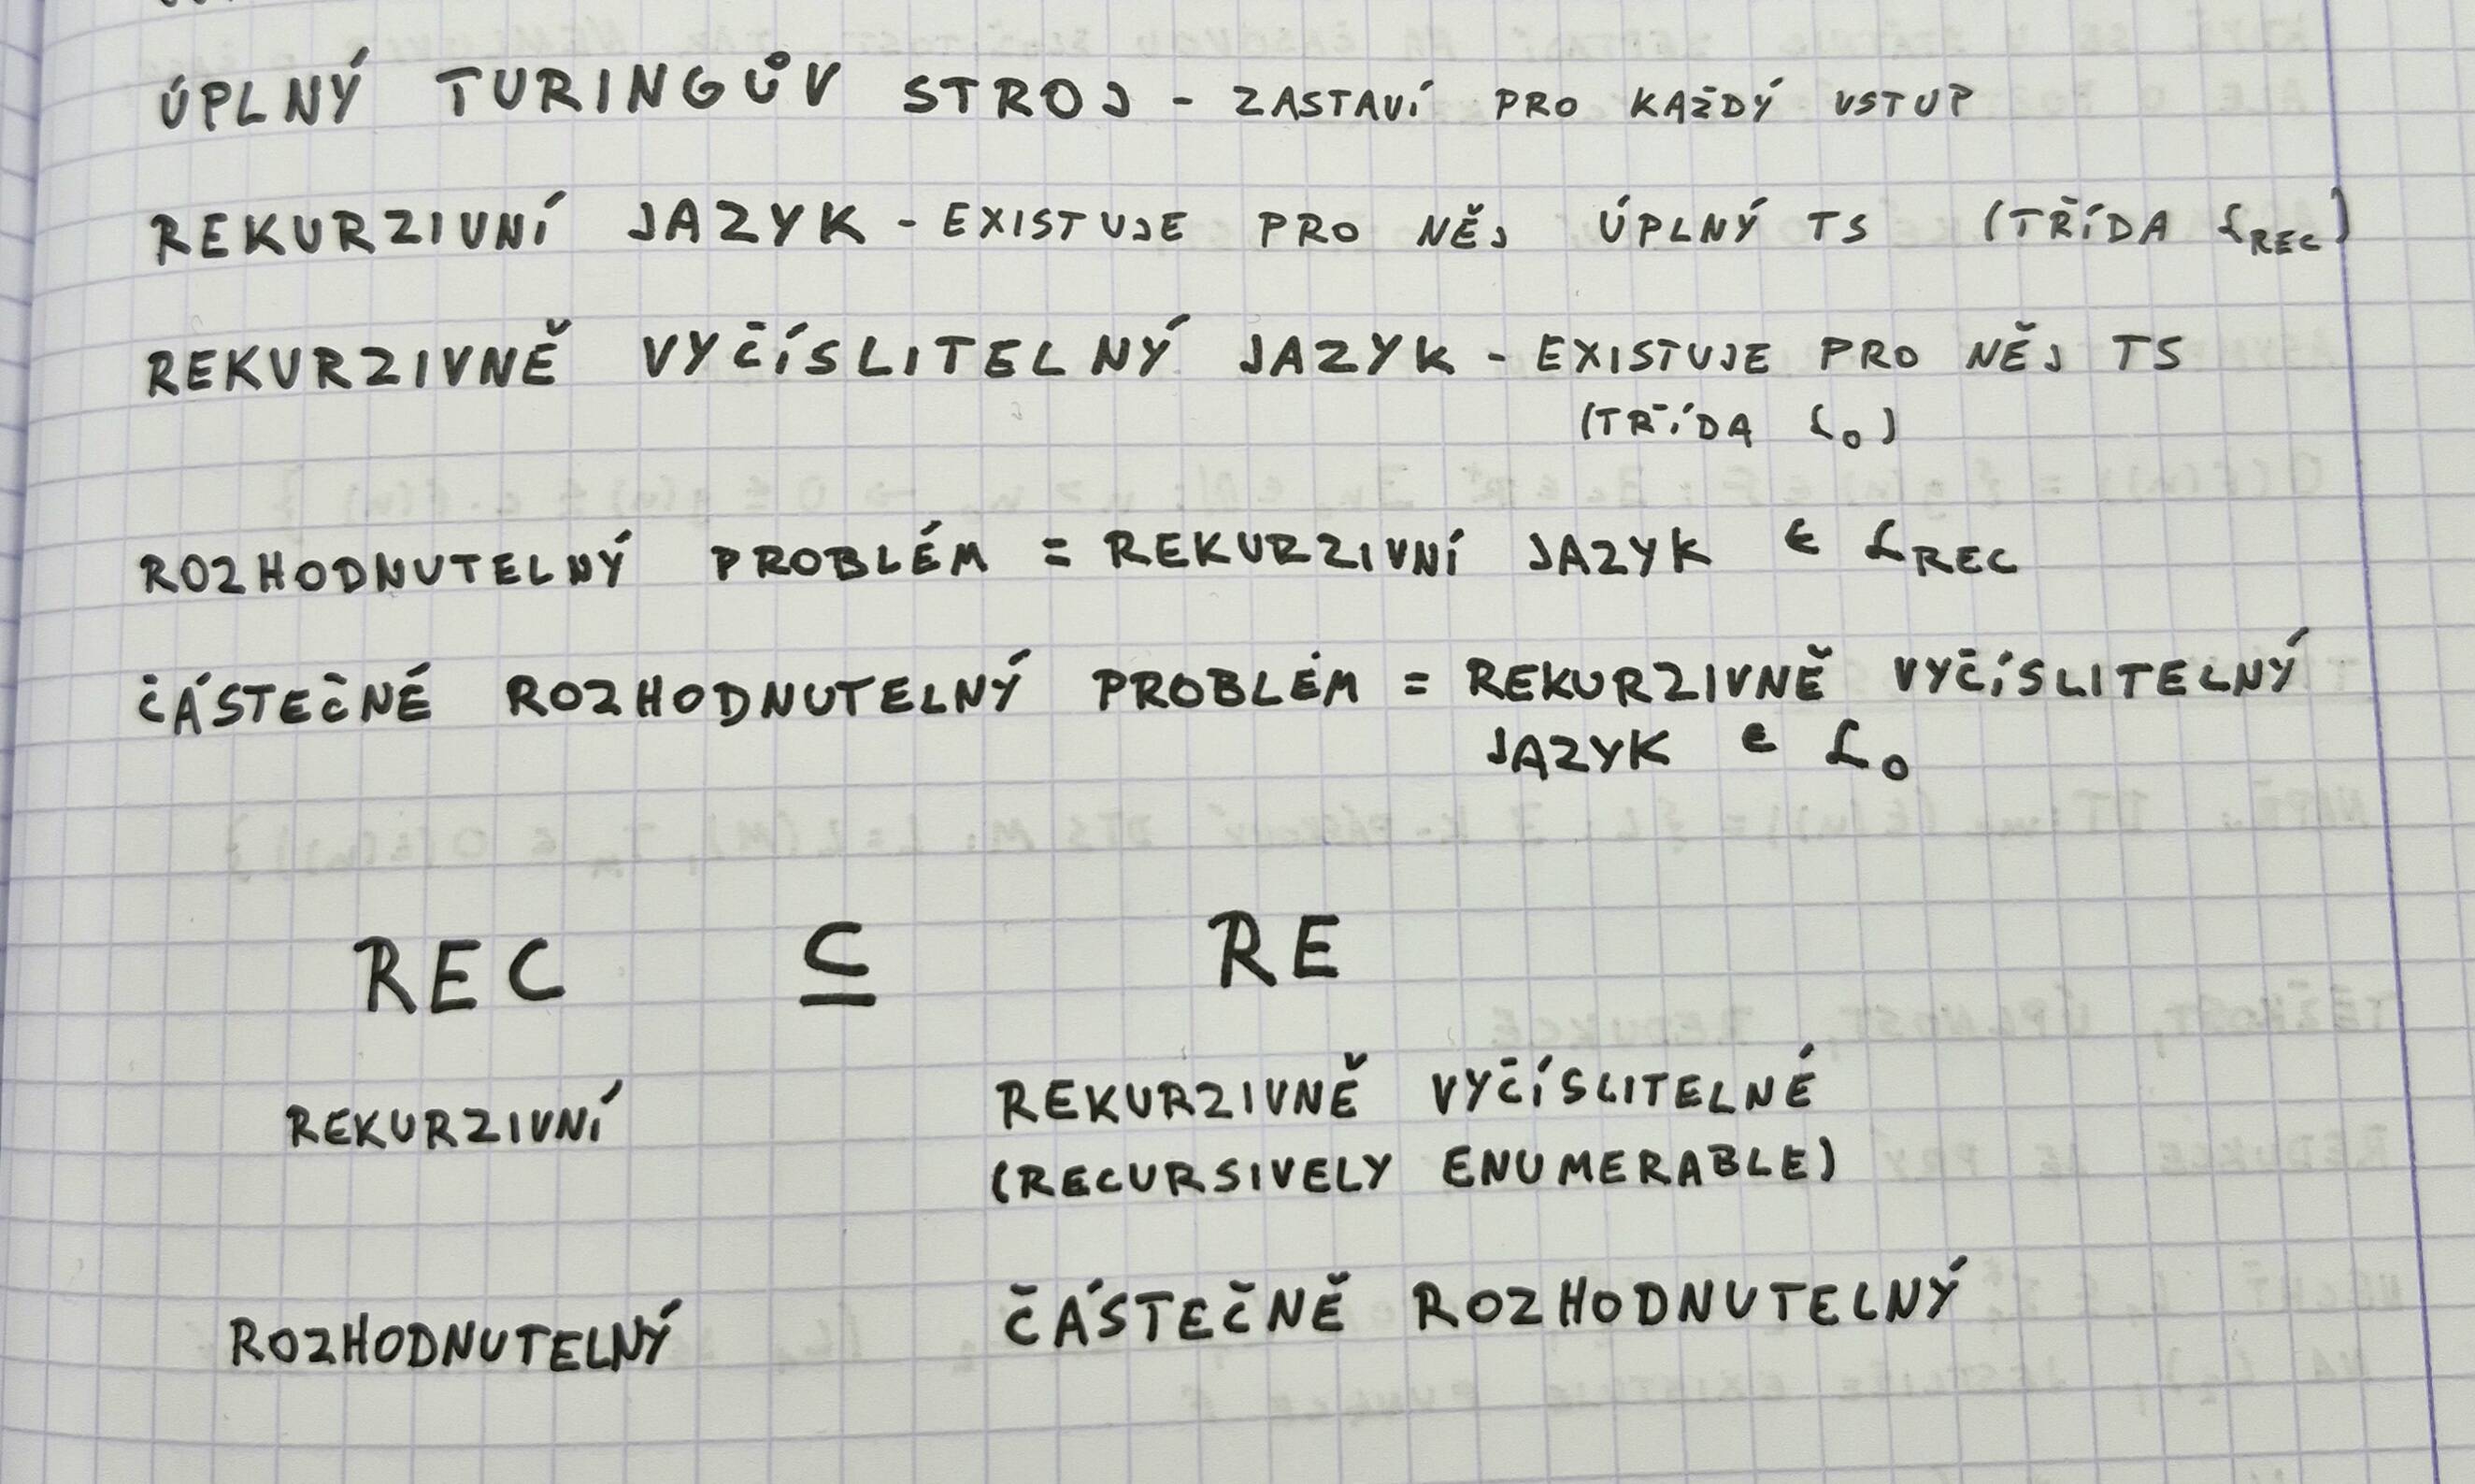 ÚPLNÝ TURINGŮV STROJ - ZASTAVÍ PRO KAŽDÝ VSTUP
REKURZIVNÍ JAZYK - EXISTUJE PRO NĚJ ÚPLNÝ TS (TŘÍDA ℒREC)
REKURZIVNĚ VYČÍSLITELNÝ JAZYK - EXISTUJE PRO NĚJ TS
(TŘÍDA ℒ0)
ROZHODNUTELNÝ PROBLÉM = REKURZIVNÍ JAZYK ∈ ℒREC
ČÁSTEČNĚ ROZHODNUTELNÝ PROBLÉM = REKURZIVNĚ VYČÍSLITELNÝ
JAZYK ∈ ℒ0
REC ⊆ RE
REKURZIVNÍ REKURZIVNĚ VYČÍSLITELNÉ
(RECURSIVELY ENUMERABLE)
ROZHODNUTELNÝ ČÁSTEČNĚ ROZHODNUTELNÝ